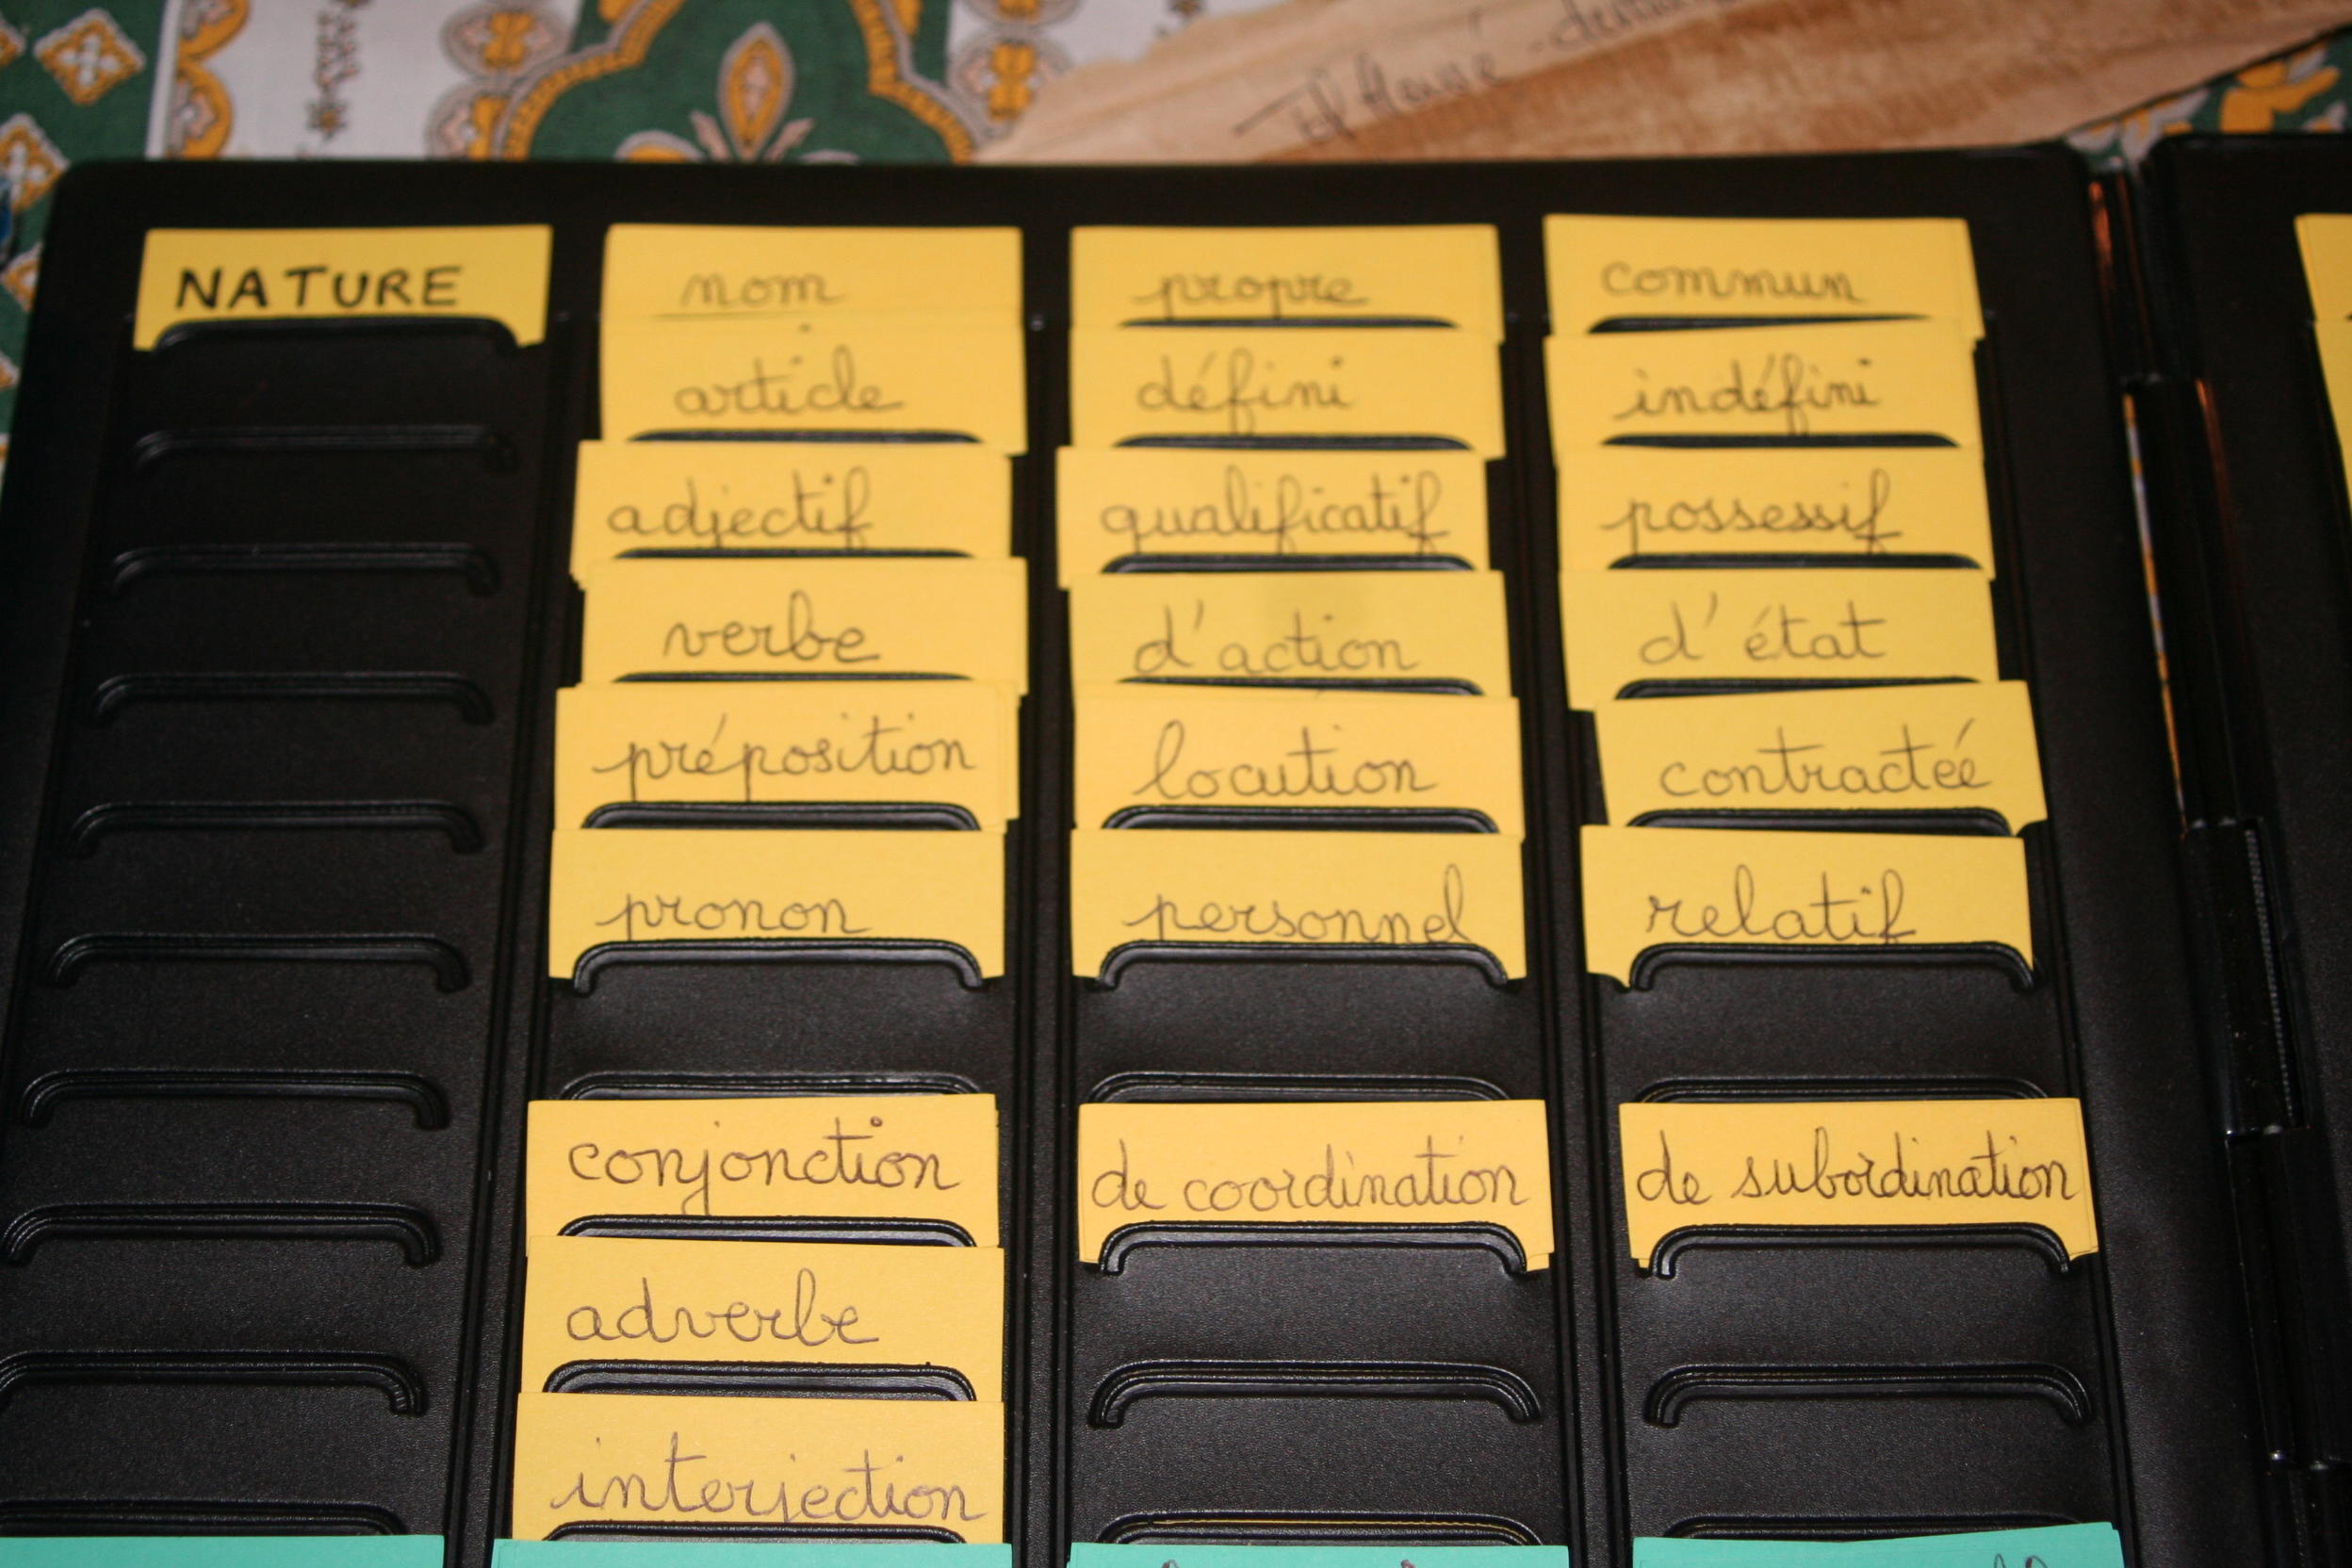 NATURE nom propre commun
article défini indéfini
adjectif qualificatif possessif
verbe d'action d'état
préposition locution contractée
pronon personnel relatif
conjonction de coordination de subordination
adverbe
interjection